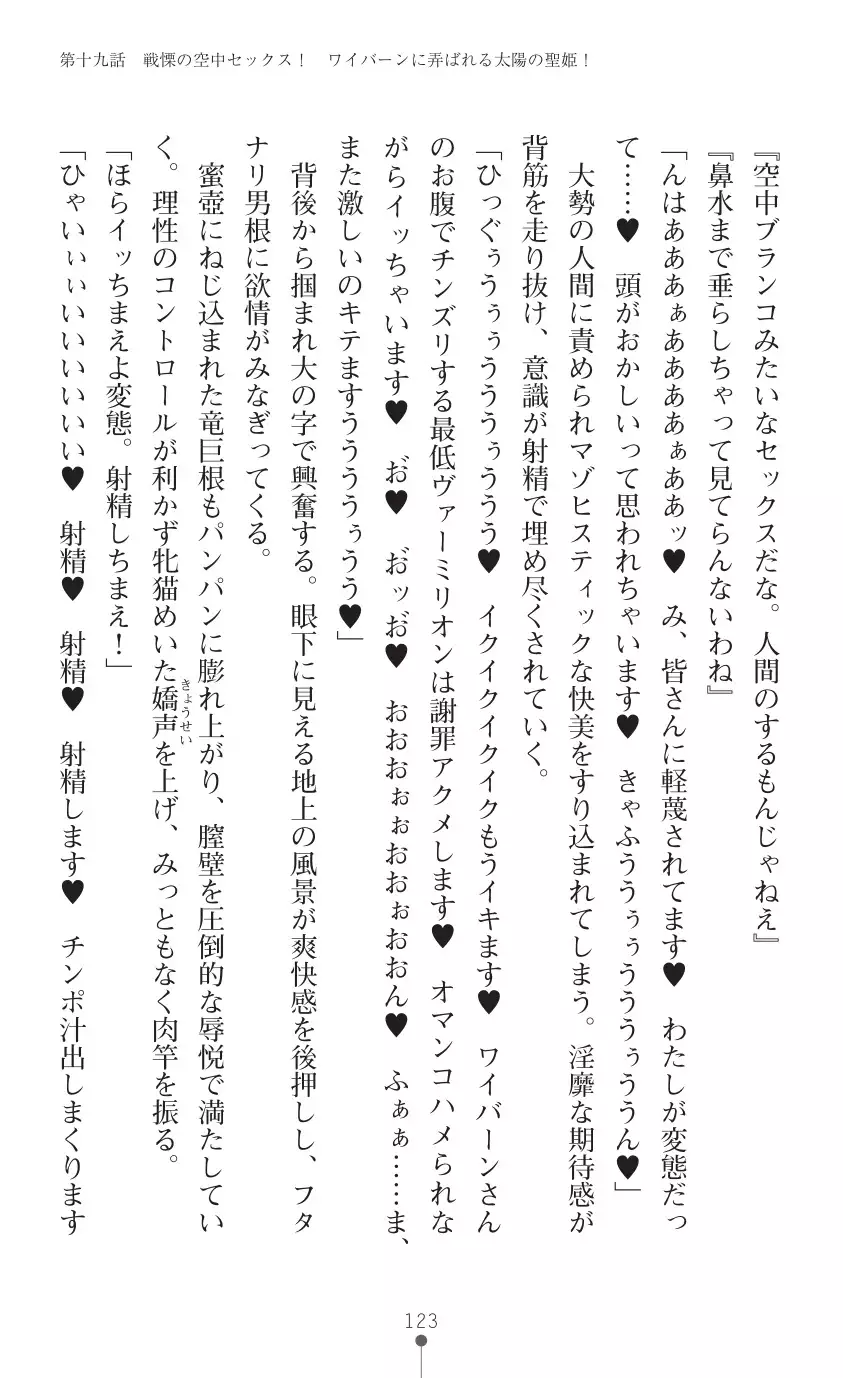 第十九話　戦慄の空中セックス！　ワイバーンに弄ばれる太陽の聖姫！
『空中ブランコみたいなセックスだな。人間のするもんじゃねえ』
『鼻水まで垂らしちゃって見てらんないわね』
「んはあああぁああああぁああッ♥　み、皆さんに軽蔑されてます♥　わたしが変態だっ
て……♥　頭がおかしいって思われちゃいます♥　きゃふううぅぅうううぅううん♥」
　大勢の人間に責められマゾヒスティックな快美をすり込まれてしまう。淫靡な期待感が
背筋を走り抜け、意識が射精で埋め尽くされていく。
「ひっぐぅうぅぅうううぅううう♥　イクイクイクイクもうイキます♥　ワイバーンさん
のお腹でチンズリする最低ヴァーミリオンは謝罪アクメします♥　オマンコハメられな
がらイッちゃいます♥　お゙♥　お゙ッお゙♥　おおおぉぉおおぉおおん♥　ふぁぁ……ま、
また激しいのキてますううううぅうう♥」
　背後から掴まれ大の字で興奮する。眼下に見える地上の風景が爽快感を後押しし、フタ
ナリ男根に欲情がみなぎってくる。
　蜜壺にねじ込まれた竜巨根もパンパンに膨れ上がり、膣壁を圧倒的な辱悦で満たしてい
く。理性のコントロールが利かず牝猫めいた嬌声を上げ、みっともなく肉竿を振る。
きょうせい
「ほらイッちまえよ変態。射精しちまえ！」
「ひゃいぃぃいいいいいいい♥　射精♥　射精♥　射精します♥　チンポ汁出しまくります
123